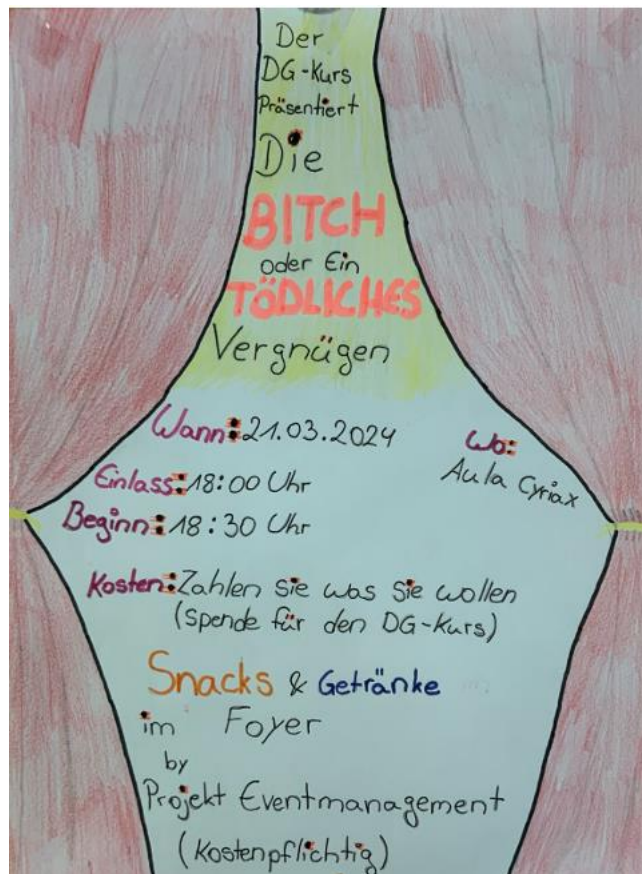 Der
DG-Kurs
Präsentiert
Die
BITCH
oder Ein
TÖDLICHES
Vergnügen
Wann: 21.03.2024
Wo:
Aula Cyriax
Einlass: 18:00 Uhr
Beginn: 18:30 Uhr
Kosten: Zahlen sie was sie wollen
(Spende für den DG-Kurs)
Snacks & Getränke
im Foyer
by
Projekt Eventmanagement
(Kostenpflichtig)